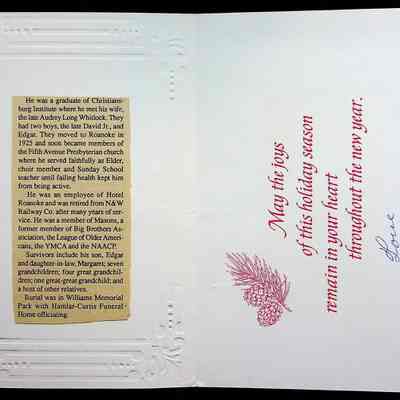 He was a graduate of Christians-
burg Institute where he met his wife,
the late Audrey Long Whitlock. They
had two boys, the late David Jr., and
Edgar. They moved to Roanoke in
1925 and soon became members of
the Fifth Avenue Presbyterian church
where he served faithfully as Elder,
choir member and Sunday School
teacher until failing health kept him
from being active.
He was an employee of Hotel
Roanoke and was retired from N&W
Railway Co. after many years of ser-
vice. He was a member of Masons, a
former member of Big Brothers As-
sociation, the League of Older Ameri-
cans, the YMCA and the NAACP.
Survivors include his son, Edgar
and daughter-in-law, Margaret; seven
grandchildren; four great grandchil-
dren; one great-great grandchild; and
a host of other relatives.
Burial was in Williams Memorial
Park with Hamlar-Curtis Funeral
Home officiating.
May the joys
of this holiday season
remain in your heart
throughout the new year.
Love